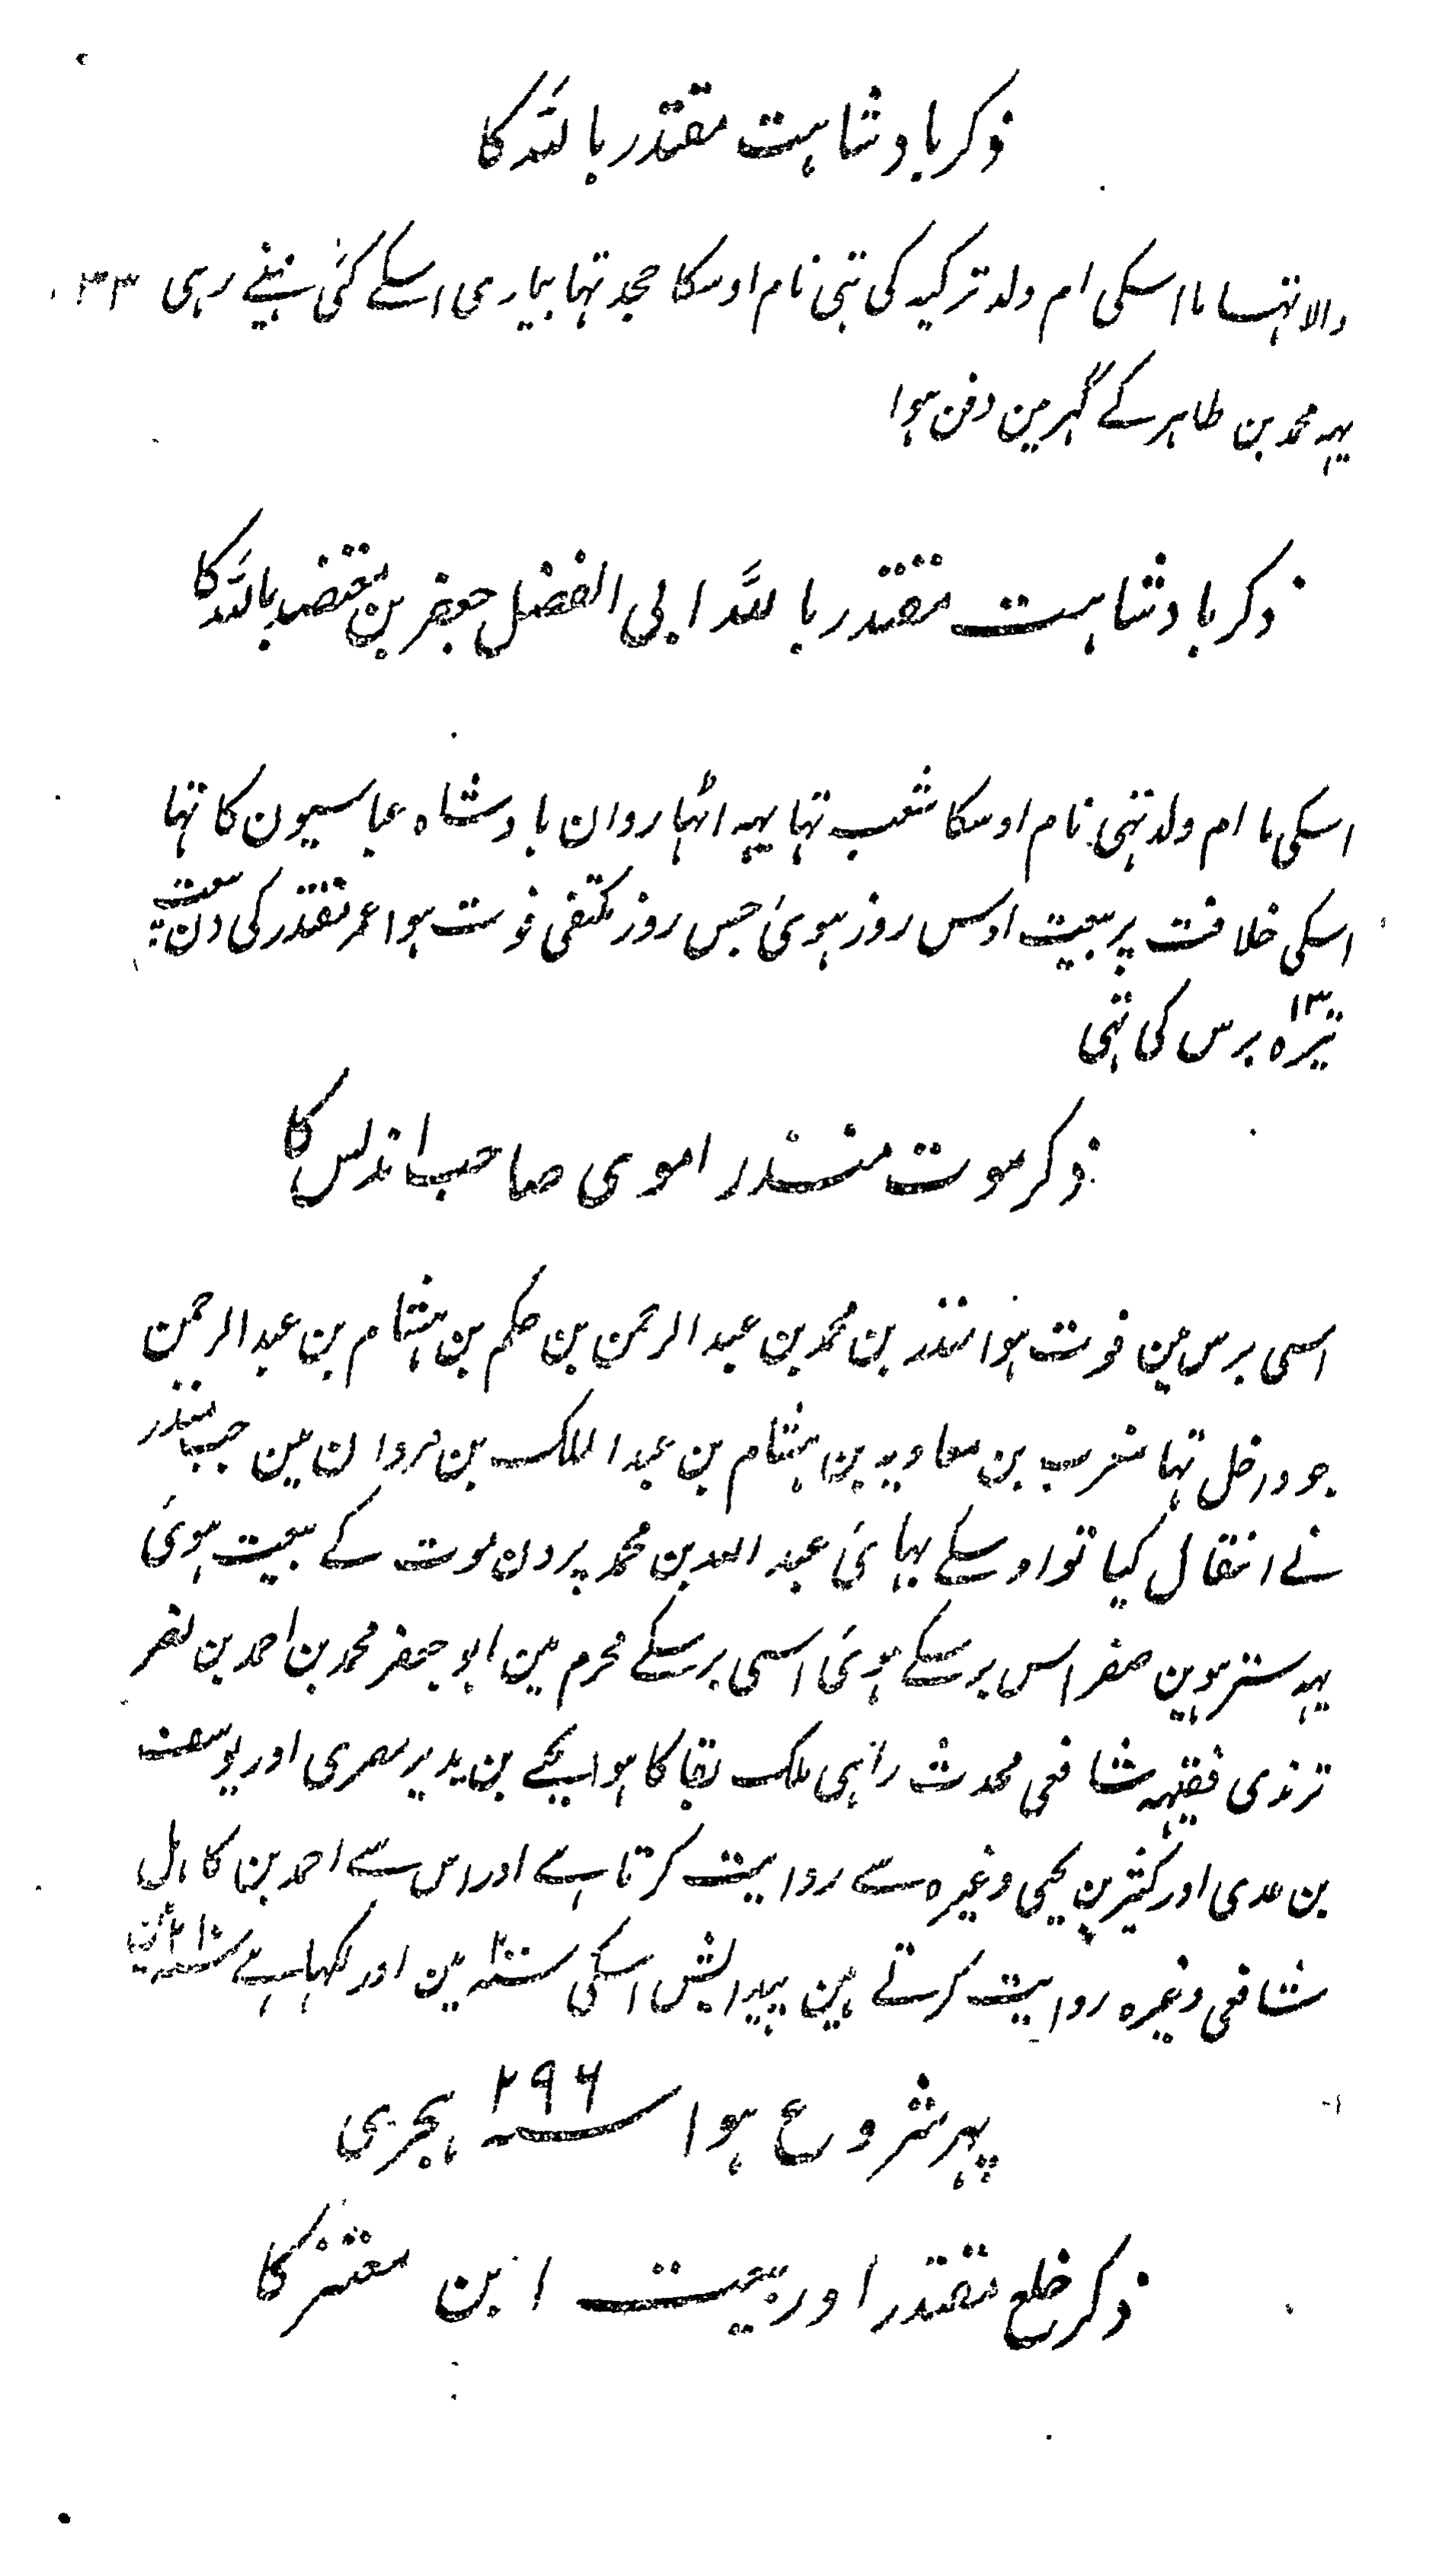 ذکر بادشاہت مقتدر باللہ کا
والا تہا ما اسکی ام ولد ترکیہ کی تہی نام اوسکا ججد تہا بیماری اسکے کئی مہینے رہی ۳۳
یہہ محمد بن طاہر کے گہر مین دفن ہوا
ذکر بادشاہت مقتدر باللہ ابی الفضل جعفر بن معتضد باللہ کا
اسکی ما ام ولد تہی نام اوسکا شعب تہا یہہ اٹہاروان بادشاہ عباسیون کا تہا
اسکی خلافت پر بیعت اوس روز ہوئی جس روز مکتفی فوت ہوا عمر مقتدر کی دن بیعت
تیرہ ۱۳ برس کی تہی
ذکر موت منذر اموی صاحب اندلس کا
اسی برس مین فوت ہوا منذر بن محمد بن عبد الرحمن بن حکم بن ہشام بن عبد الرحمن
جو داخل تہا مغرب بن معاویہ بن ہشام بن عبد الملک بن مروان مین جب منذر
نے انتقال کیا تو اوسکے بہائی عبد اللہ بن محمد پر دن موت کے بیعت ہوئی
یہہ سترہوین صفر اس برسکے ہوئی اسی برسکے محرم مین ابو جعفر محمد بن احمد بن نصر
ترمذی فقیہہ شافعی محدث راہی ملک بقا کا ہوا یحیے بن بدیر مصری اور یوسف
بن عدی اور کثیر بن یحیی وغیرہ سے روایت کرتا ہے اور اس سے احمد بن کامل
شافعی وغیرہ روایت کرتے ہین پیدایش اسکی سنہ ۲۰۰ مین اور لکہا ہے سنہ ۲۱۰ مین
پہر شروع ہوا سنہ ۲۹۶ ہجری
ذکر خلع مقتدر اور بیعت ابن معتز کا